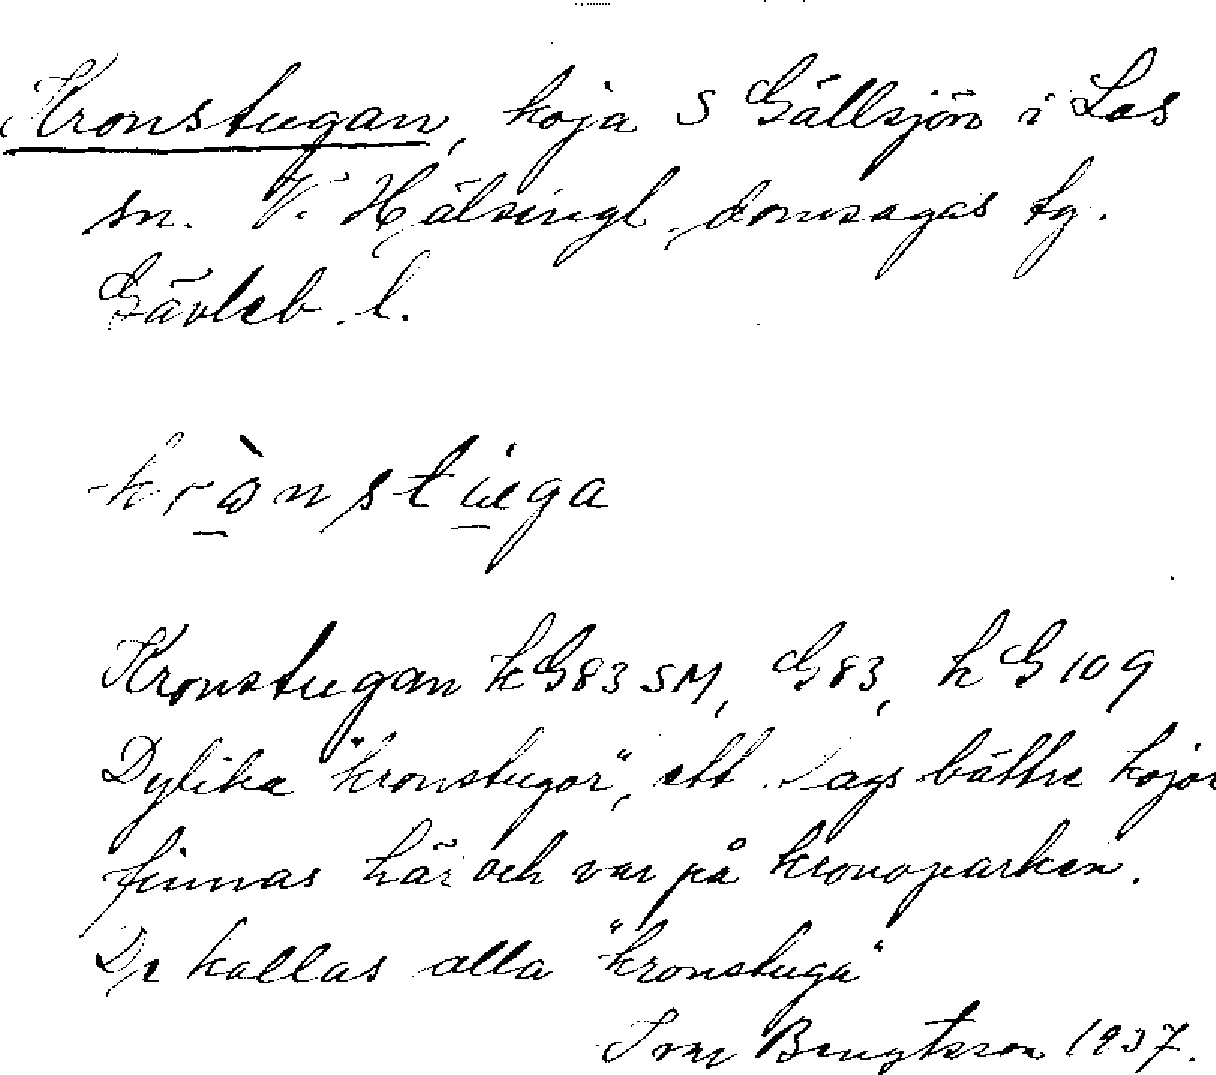 Kronstugan, koja S Gällsjön i Los
sn. V. Hälsingl. domsagas tg.
Gävleb. l.
krò̠nstu̠ga
Kronstugan kG83SM, G83, hG109
Dylika "kronstugor", ett slags bättre kojor
finnas här och var på kronoparken.
De kallas alla "kronstuga"
Bengtsson 1937.